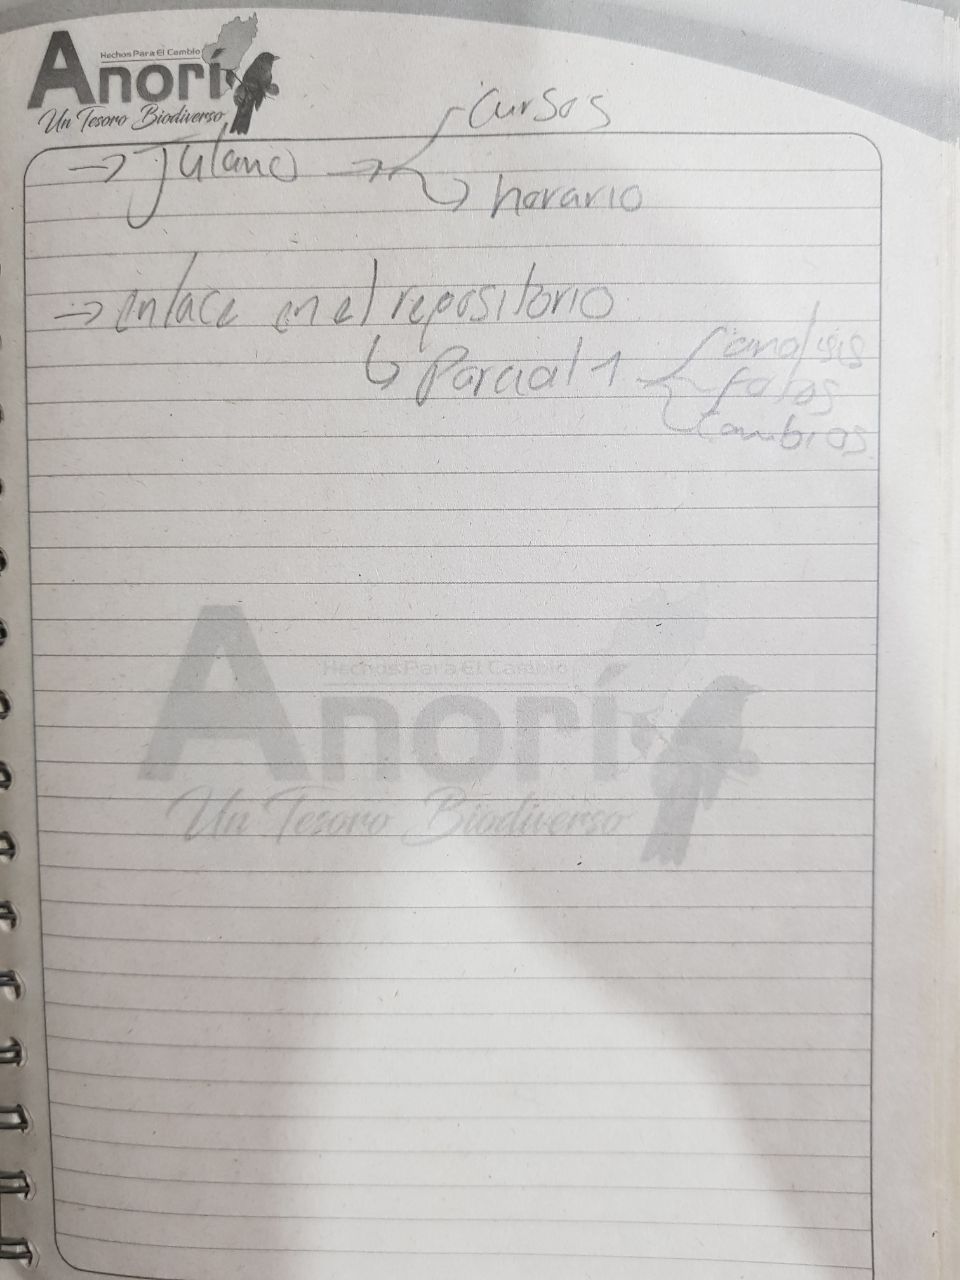 Hechos Para El Cambio
Anorí
Un Tesoro Biodiverso
cursos
→ →
horario
→ enlace en el repositorio
↳ Parcial 1
análisis
cambios
Hechos Para El Cambio
Anorí
Un Tesoro Biodiverso